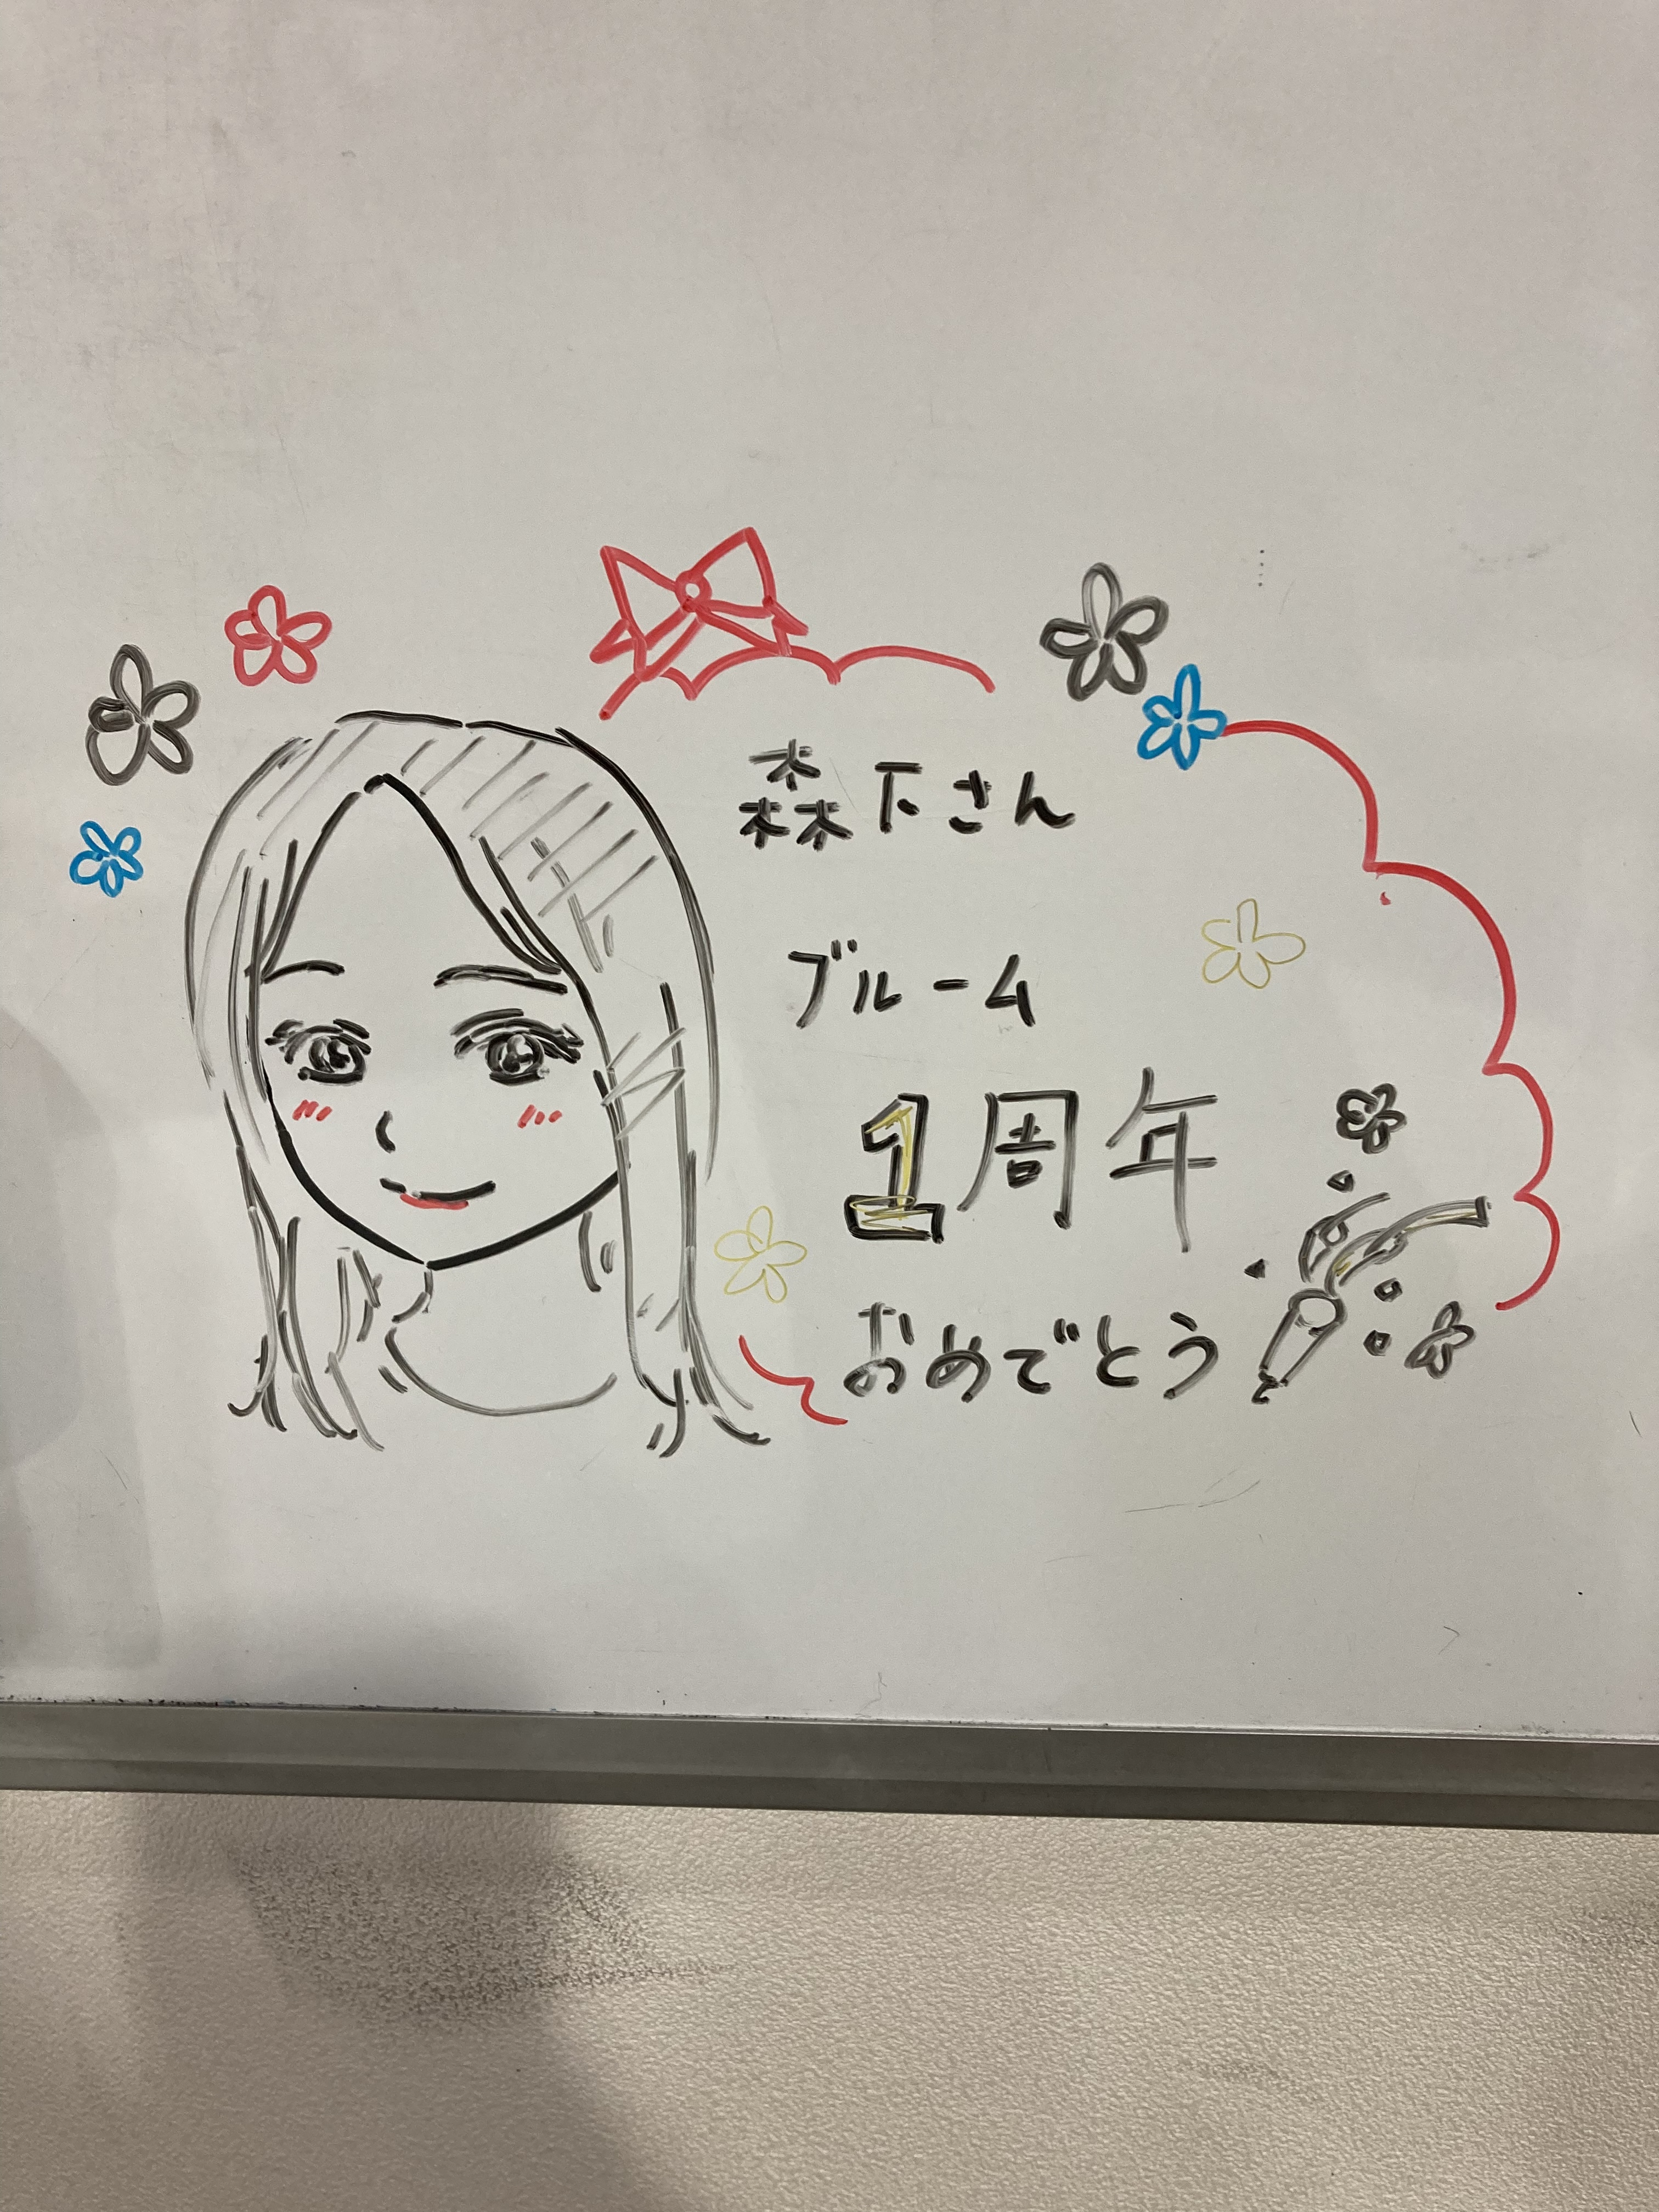 森下さん
ブルーム
1周年
おめでとう